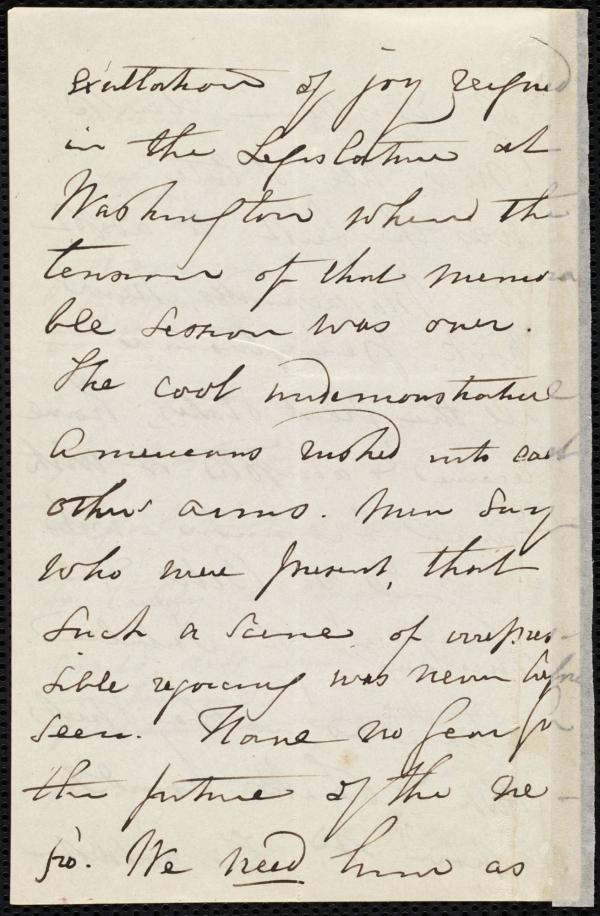 exultation of joy reigned
in the Legislature at
Washington when the
tension of that memora
ble session was over.
The cool undemonstrative
Americans rushed into each
others arms. Men say
who were present, that
such a scene of irrepres-
sible rejoicing was never before
seen. Have no fear for
the future of the ne-
gro. We need him as